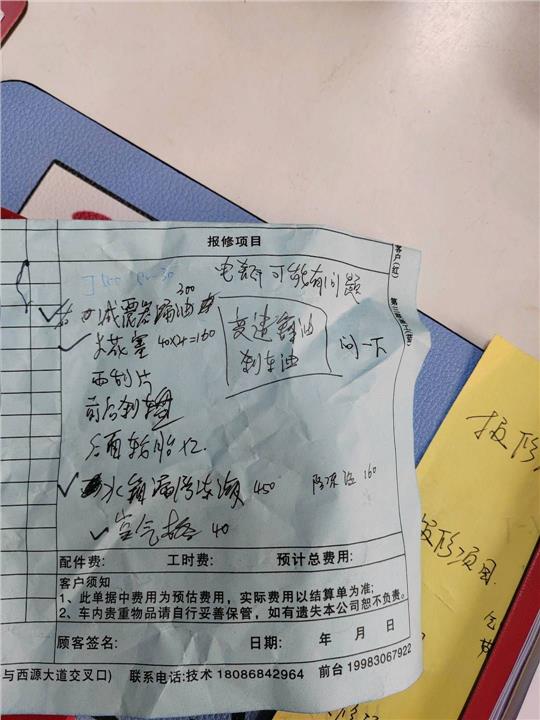 报修项目
电 可能有问题
300
减震器漏油
火花塞 40×4=160
变速箱油
刹车油
问一下
刹片
前后刹
后面轮胎×2
水箱漏防冻液 450 防冻液 160
空气格 40
配件费: 工时费: 预计总费用:
客户须知
1、此单据中费用为预估费用，实际费用以结算单为准;
2、车内贵重物品请自行妥善保管，如有遗失本公司恕不负责。
顾客签名: 日期: 年 月 日
与西源大道交叉口) 联系电话:技术 18086842964 前台 19983067922
客户(红)
报修
报修项目